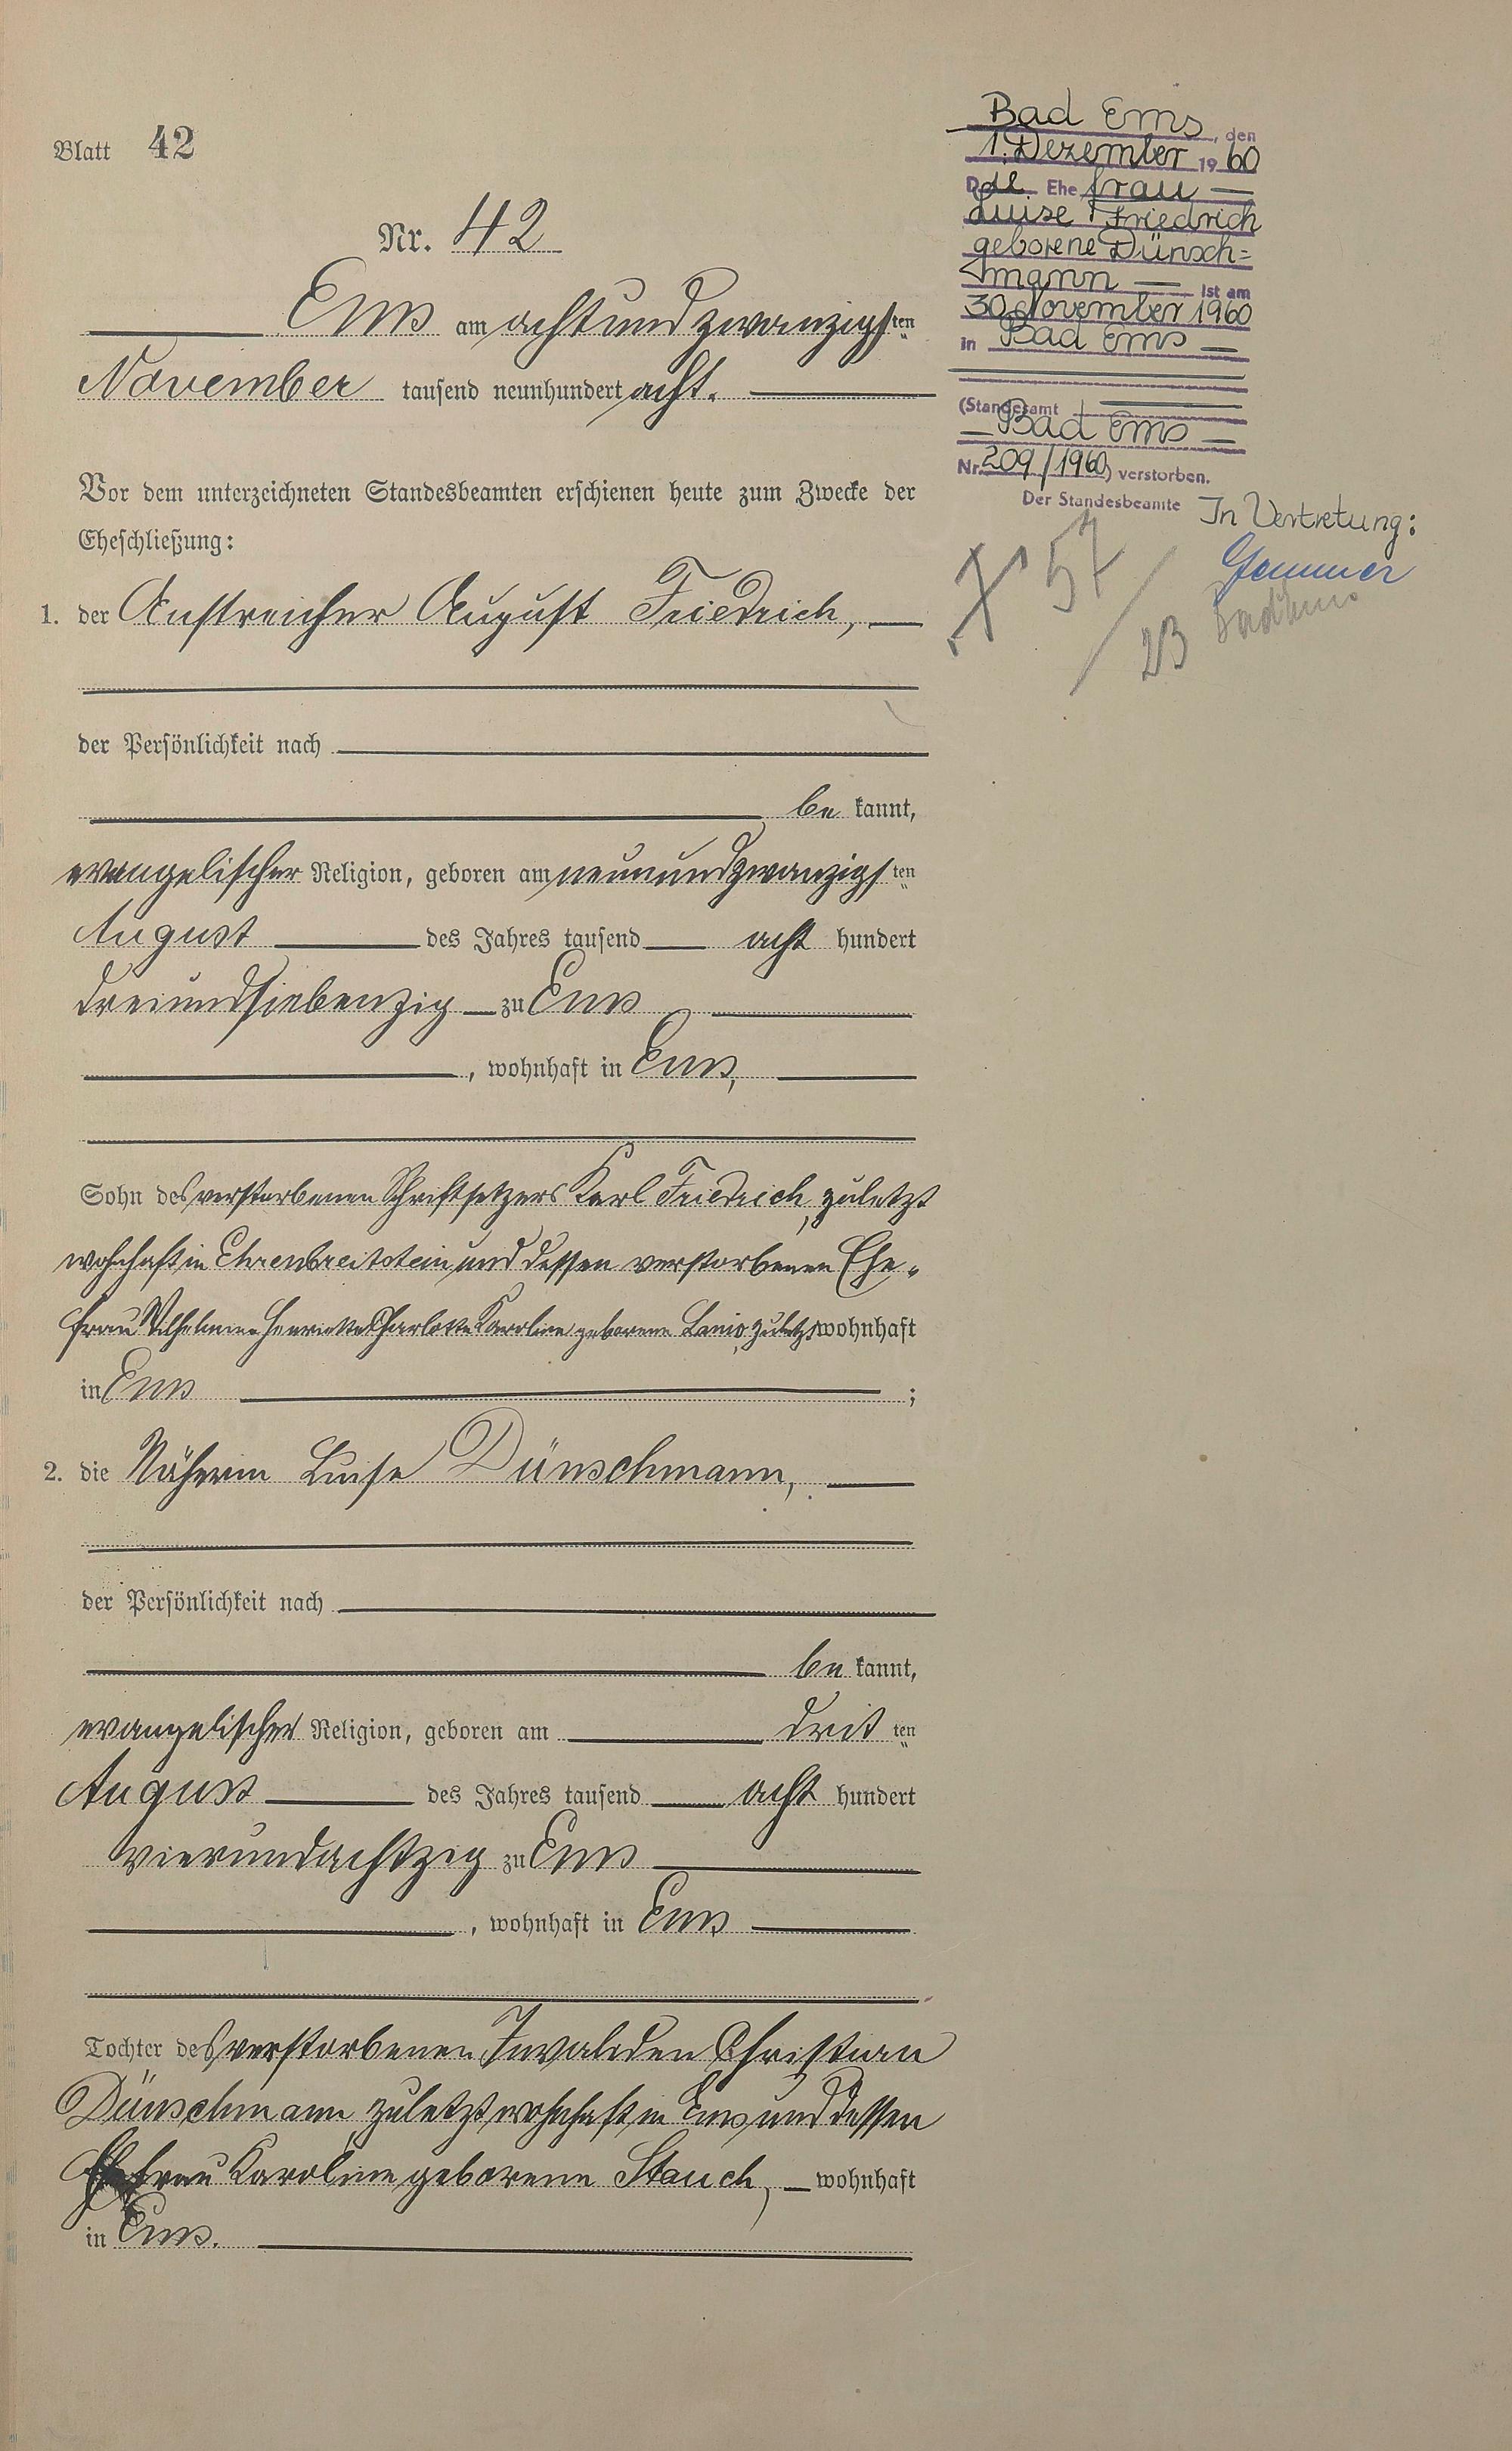 Blatt 42
Nr. 42
Ems am achtundzwanzigsten
November tausend neunhundert acht.
Vor dem unterzeichneten Standesbeamten erschienen heute zum Zwecke der
Eheschließung:
1. der Anstreicher August Friedrich,
der Persönlichkeit nach
be kannt,
evangelischer Religion, geboren am neunundzwanzigsten
August des Jahres tausend acht hundert
dreiundsiebenzig zu Ems
, wohnhaft in Ems,
Sohn des verstorbenen Schriftsetzers Karl Friedrich, zuletzt
wohnhaft in Ehrenbreitstein und dessen verstorbenen Ehe-
frau Wilhelmine Henriette Charlotte Karoline geborene Lanio, zuletzt wohnhaft
in Ems ;
2. die Näherin Luise Dünschmann,
der Persönlichkeit nach
be kannt,
evangelischer Religion, geboren am dritten
August des Jahres tausend acht hundert
vierundachtzig zu Ems
, wohnhaft in Ems
Tochter des verstorbenen Invaliden Christian
Dünschmann, zuletzt wohnhaft in Ems und dessen
Ehefrau Karoline geborene Stauch, wohnhaft
in Ems.
Bad Ems, den
1. Dezember 1960
Ehefrau
Luise Friedrich
geborene Dünsch=
mann ist am
30. November 1960
in Bad Ems
(Standesamt
Bad Ems
Nr. 209/1960) verstorben.
Der Standesbeamte In Vertretung:
57